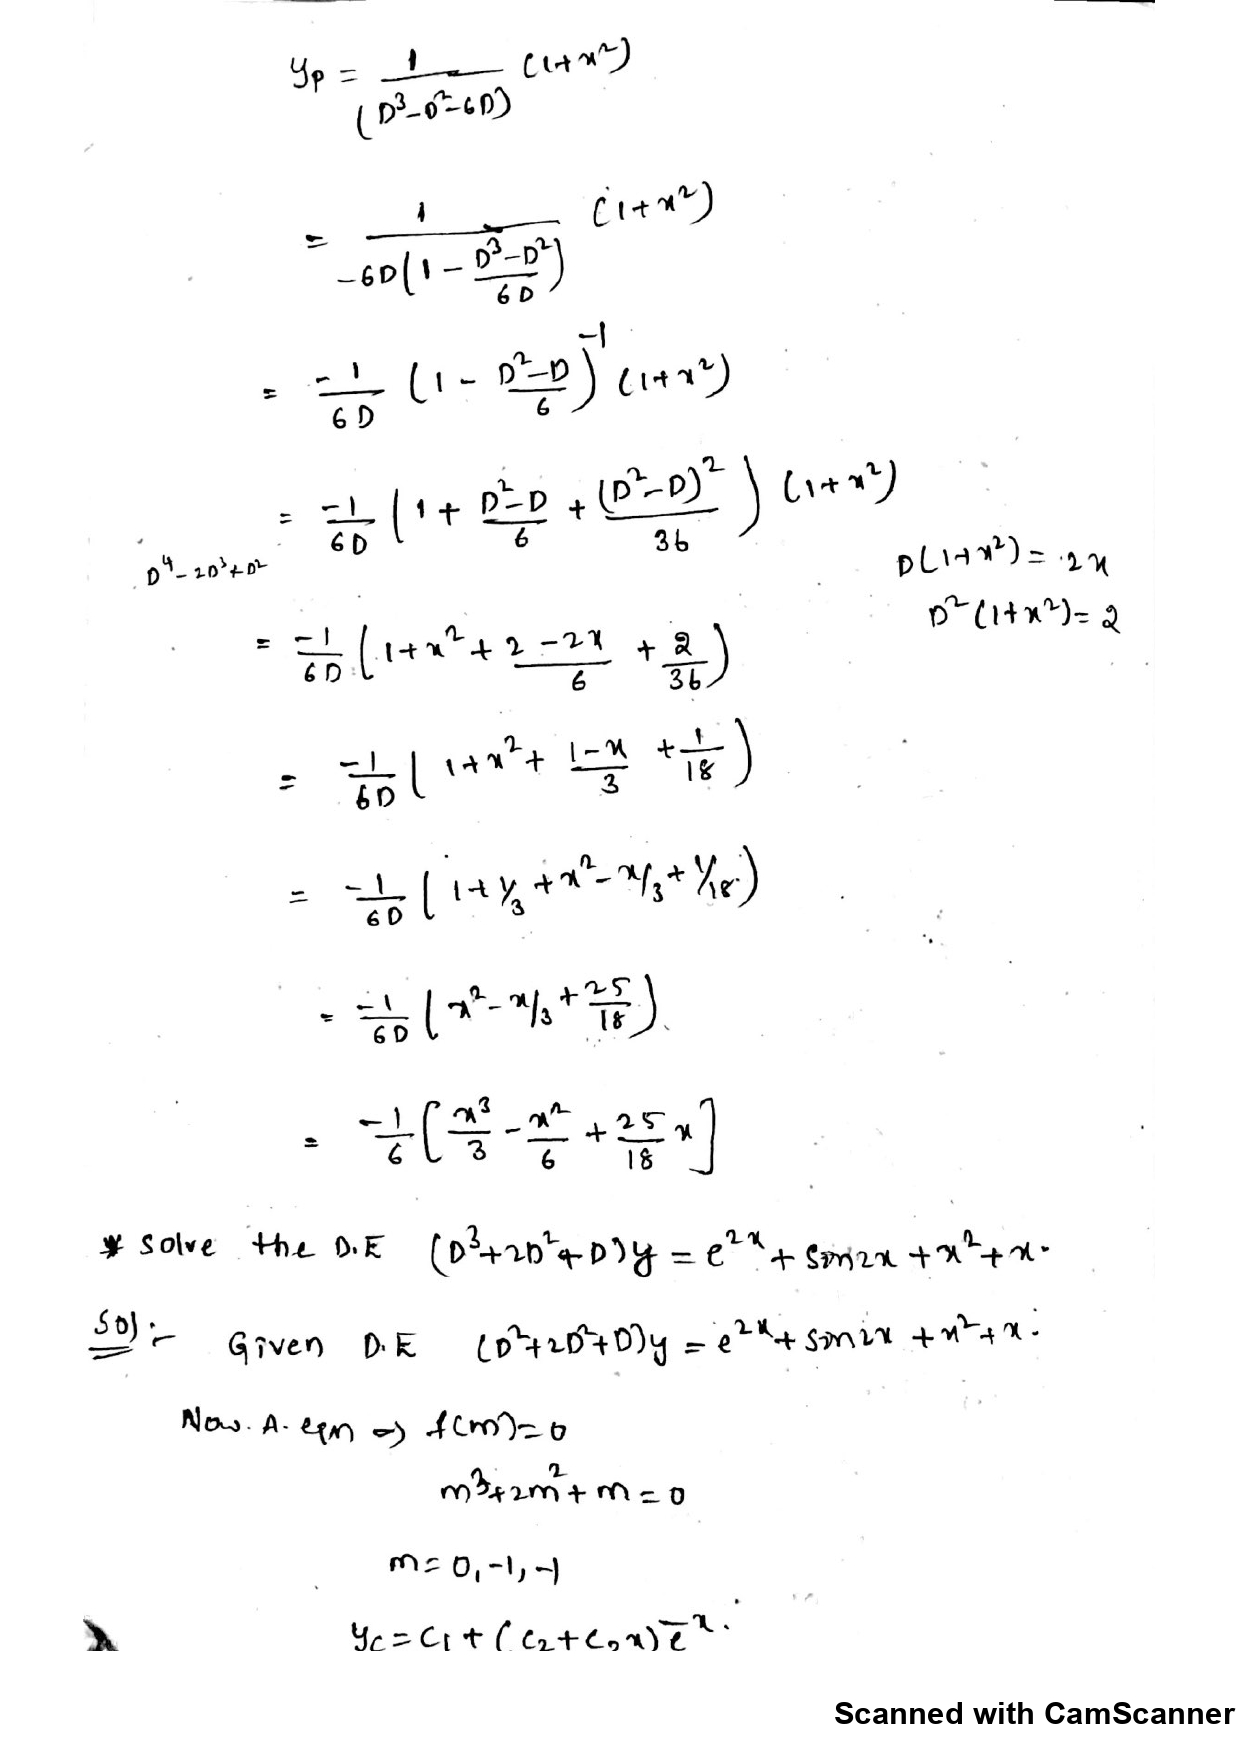 yp = 1/(D³-D²-6D) (1+x²)
= 1/(-6D(1 - (D³-D²)/6D)) (1+x²)
= -1/6D (1 - (D²-D)/6)⁻¹ (1+x²)
= -1/6D (1 + (D²-D)/6 + (D²-D)²/36) (1+x²)
D⁴-2D³+D²
D(1+x²) = 2x
D²(1+x²) = 2
= -1/6D (1+x² + (2-2x)/6 + 2/36)
= -1/6D (1+x² + (1-x)/3 + 1/18)
= -1/6D (1+1/3+x²-x/3+1/18)
= -1/6D (x²-x/3+25/18)
= -1/6 [x³/3 - x²/6 + 25/18 x]
* Solve the D.E (D³+2D²+D)y = e²ˣ + sin2x + x² + x.
Sol:- Given D.E (D²+2D²+D)y = e²ˣ + sin2x + x² + x.
Now. A. eqn ⇒ f(m)=0
m³+2m²+m=0
m=0,-1,-1
yc = c1 + (c2+c3x)e⁻ˣ.
Scanned with CamScanner